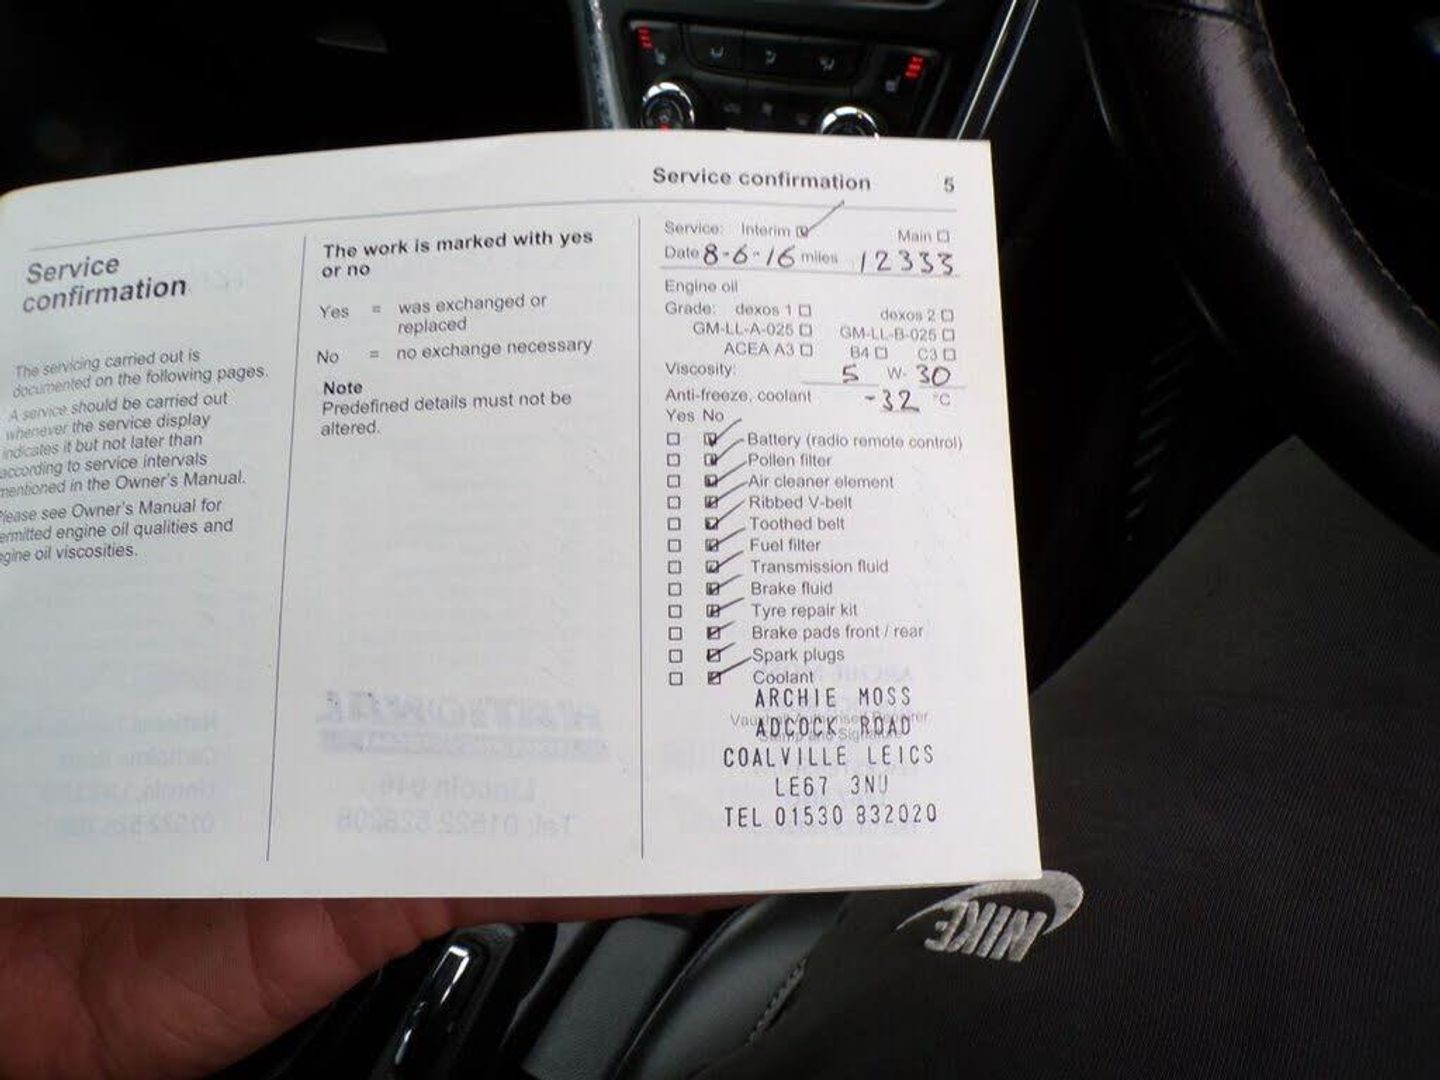 Service confirmation 5
Service
confirmation
The servicing carried out is
documented on the following pages.
A service should be carried out
whenever the service display
indicates it but not later than
according to service intervals
mentioned in the Owner's Manual.
Please see Owner's Manual for
ermitted engine oil qualities and
gine oil viscosities.
The work is marked with yes
or no
Yes = was exchanged or
replaced
No = no exchange necessary
Note
Predefined details must not be
altered.
Service: Interim Main
Date 8-6-16 miles 12333
Engine oil
Grade: dexos 1 dexos 2
GM-LL-A-025 GM-LL-B-025
ACEA A3 B4 C3
Viscosity: 5 W- 30
Anti-freeze, coolant -32 °C
Yes No
Battery (radio remote control)
Pollen filter
Air cleaner element
Ribbed V-belt
Toothed belt
Fuel filter
Transmission fluid
Brake fluid
Tyre repair kit
Brake pads front / rear
Spark plugs
Coolant
ARCHIE MOSS
ADCOCK ROAD
COALVILLE LEICS
LE67 3NU
TEL 01530 832020
NIKE